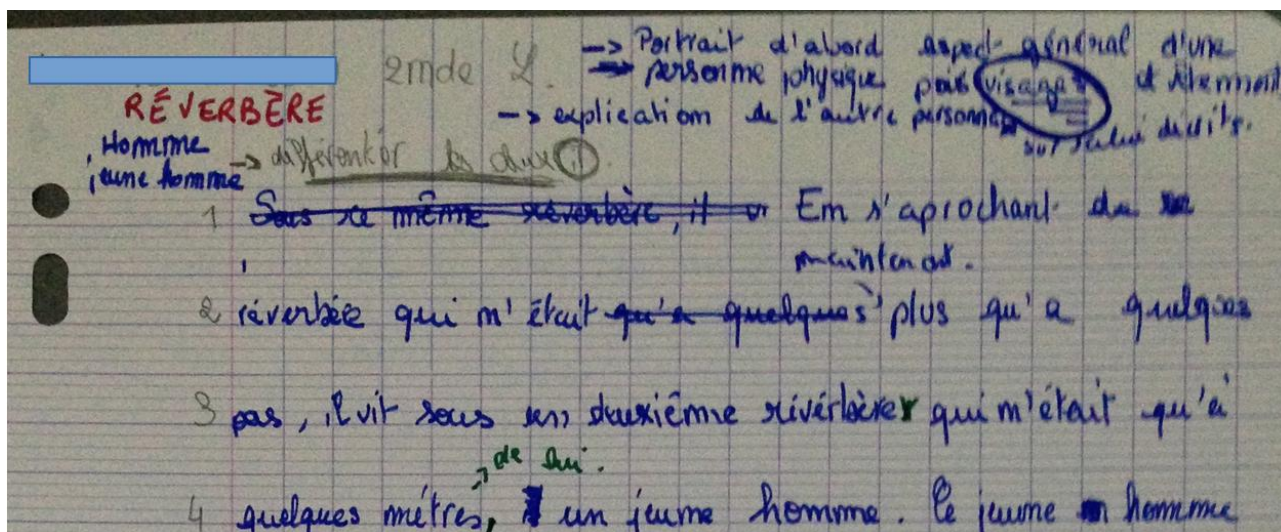 2nde L. -> Portrait d'abord aspect général d'une
-> personne physique puis visage
RÉVERBÈRE
-> explication de l'autre personne
, Homme
jeune homme -> différentier les deux il
1 Sous ce même réverbère, il Em s'aprochant du
maintenant.
2 réverbère qui m'était qu'a quelques plus qu'a quelques
3 pas, il vit sous un deuxième révérbère qui m'était qu'à
de lui.
4 quelques mètres, un jeune homme. Ce jeune homme